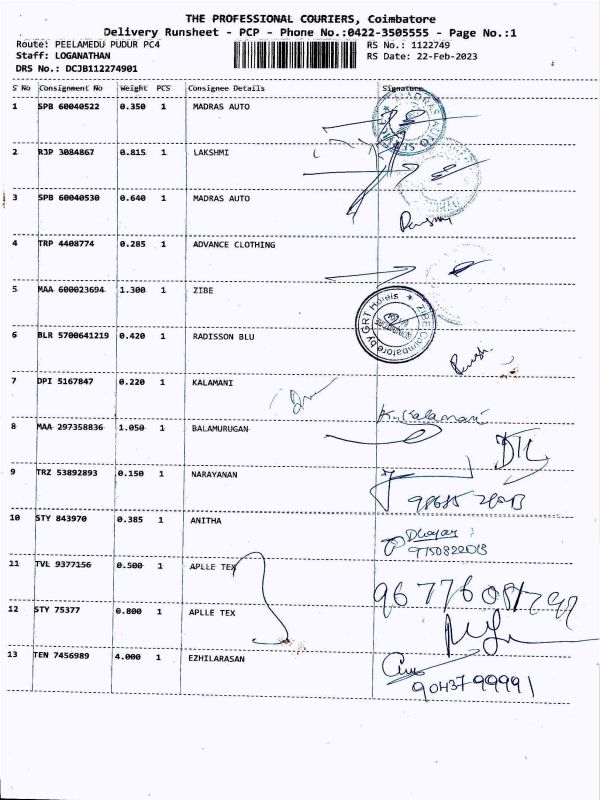 THE PROFESSIONAL COURIERS, Coimbatore
Delivery Runsheet - PCP - Phone No.:0422-3505555 - Page No.:1
Route: PEELAMEDU PUDUR PC4 RS No.: 1122749
Staff: LOGANATHAN RS Date: 22-Feb-2023
DRS No.: DCJB112274901
S No Consignment No Weight PCS Consignee Details Signature
1 SPB 60040522 0.350 1 MADRAS AUTO
2 RJP 3084867 0.815 1 LAKSHMI
3 SPB 60040530 0.640 1 MADRAS AUTO
4 TRP 4408774 0.285 1 ADVANCE CLOTHING
5 MAA 600023694 1.300 1 ZIBE
ZIBE Coimbatore by GRT Hotels
6 BLR 5700641219 0.420 1 RADISSON BLU
7 DPI 5167847 0.220 1 KALAMANI
K. Kalamani
8 MAA 297358836 1.050 1 BALAMURUGAN
9 TRZ 53892893 0.150 1 NARAYANAN
10 STY 843970 0.385 1 ANITHA
11 TVL 9377156 0.500 1 APLLE TEX
12 STY 75377 0.800 1 APLLE TEX
13 TEN 7456989 4.000 1 EZHILARASAN
90437 99991